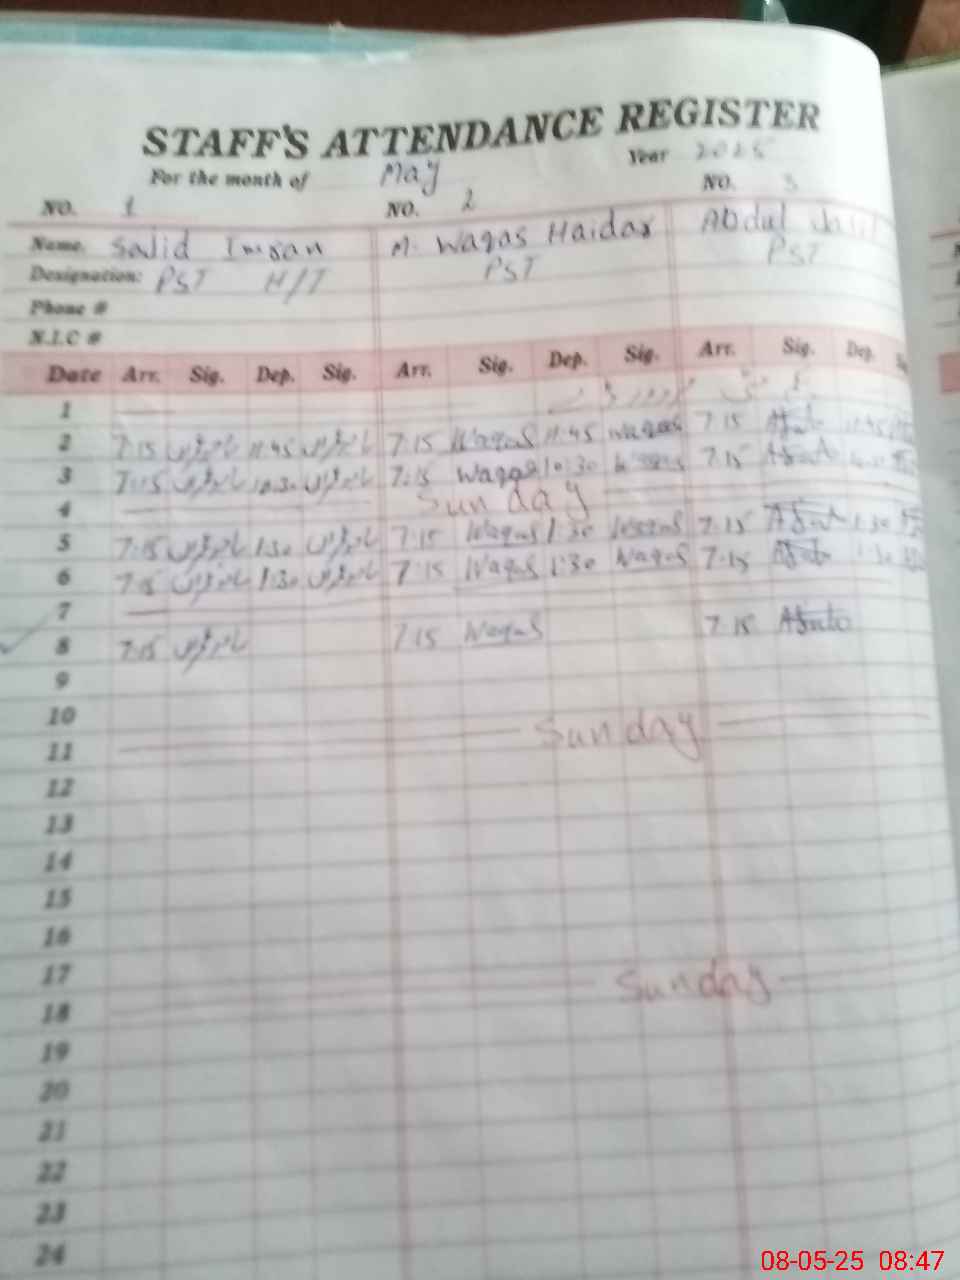 STAFF'S ATTENDANCE REGISTER
For the month of May Year 2025
NO. 1 NO. 2 NO. 3
Name. Sajid Imran M. Waqas Haidar Abdul
Designation: PST H/T PST PST
Phone #
N.I.C #
Date Arr. Sig. Dep. Sig. Arr. Sig. Dep. Sig. Arr. Sig. Dep.
1
2 7:15 11:45 7:15 Waqas 11:45 Waqas 7:15
3 7:15 10:30 7:15 Waqas 10:30 Waqas 7:15
4 Sunday
5 7:15 1:30 7:15 Waqas 1:30 Waqas 7:15 1:30
6 7:15 1:30 7:15 Waqas 1:30 Waqas 7:15 1:30
7
8 7:15 7:15 Waqas 7:15
9
10
11 Sunday
12
13
14
15
16
17
18 Sunday
19
20
21
22
23
24
08-05-25 08:47